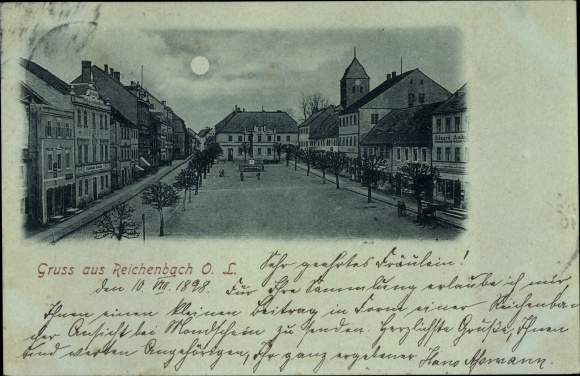 Gruss aus Reichenbach O. L.
Sehr geehrtes Fräulein!
den 10. VIII. 1898. Für Ihre Sammlung erlaube ich mir
Ihnen einen kleinen Beitrag in Form einer Reichenba-
cher Ansicht bei Mondschein zu senden. Herzlichste Grüße, Ihnen
und werten Angehörigen, Ihr ganz ergebener Hans